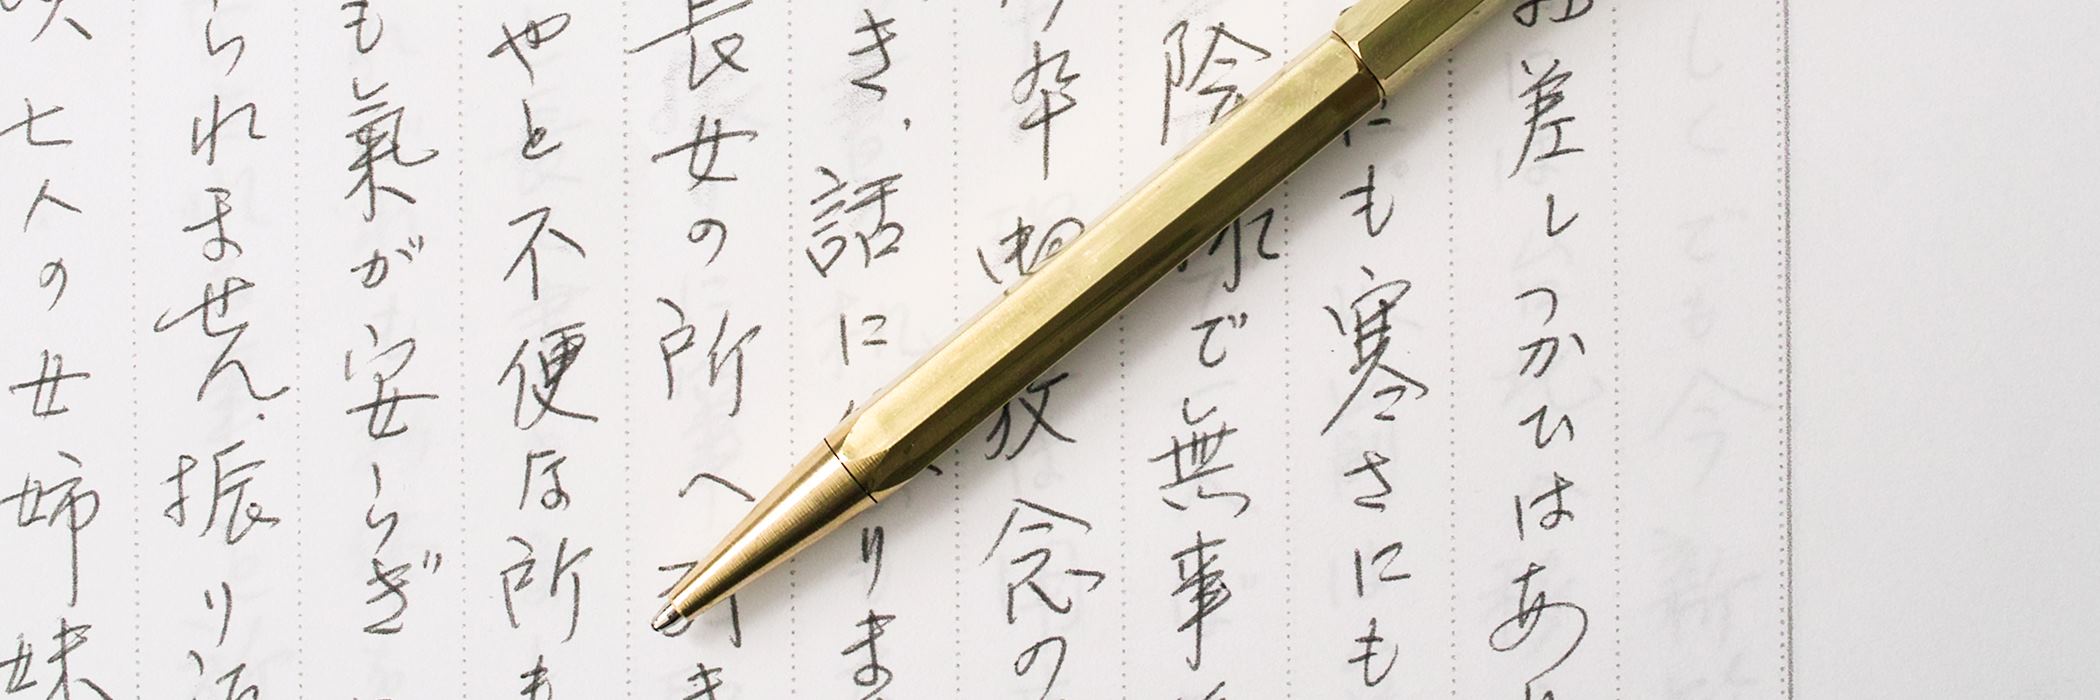 差しつかひはあ
にも寒さにも
陰 れで無事
卒 念の
き、話に りま
長女の所へ
やと不便な所も
も氣が安らぎ
られません。振り返
七人の女姉妹